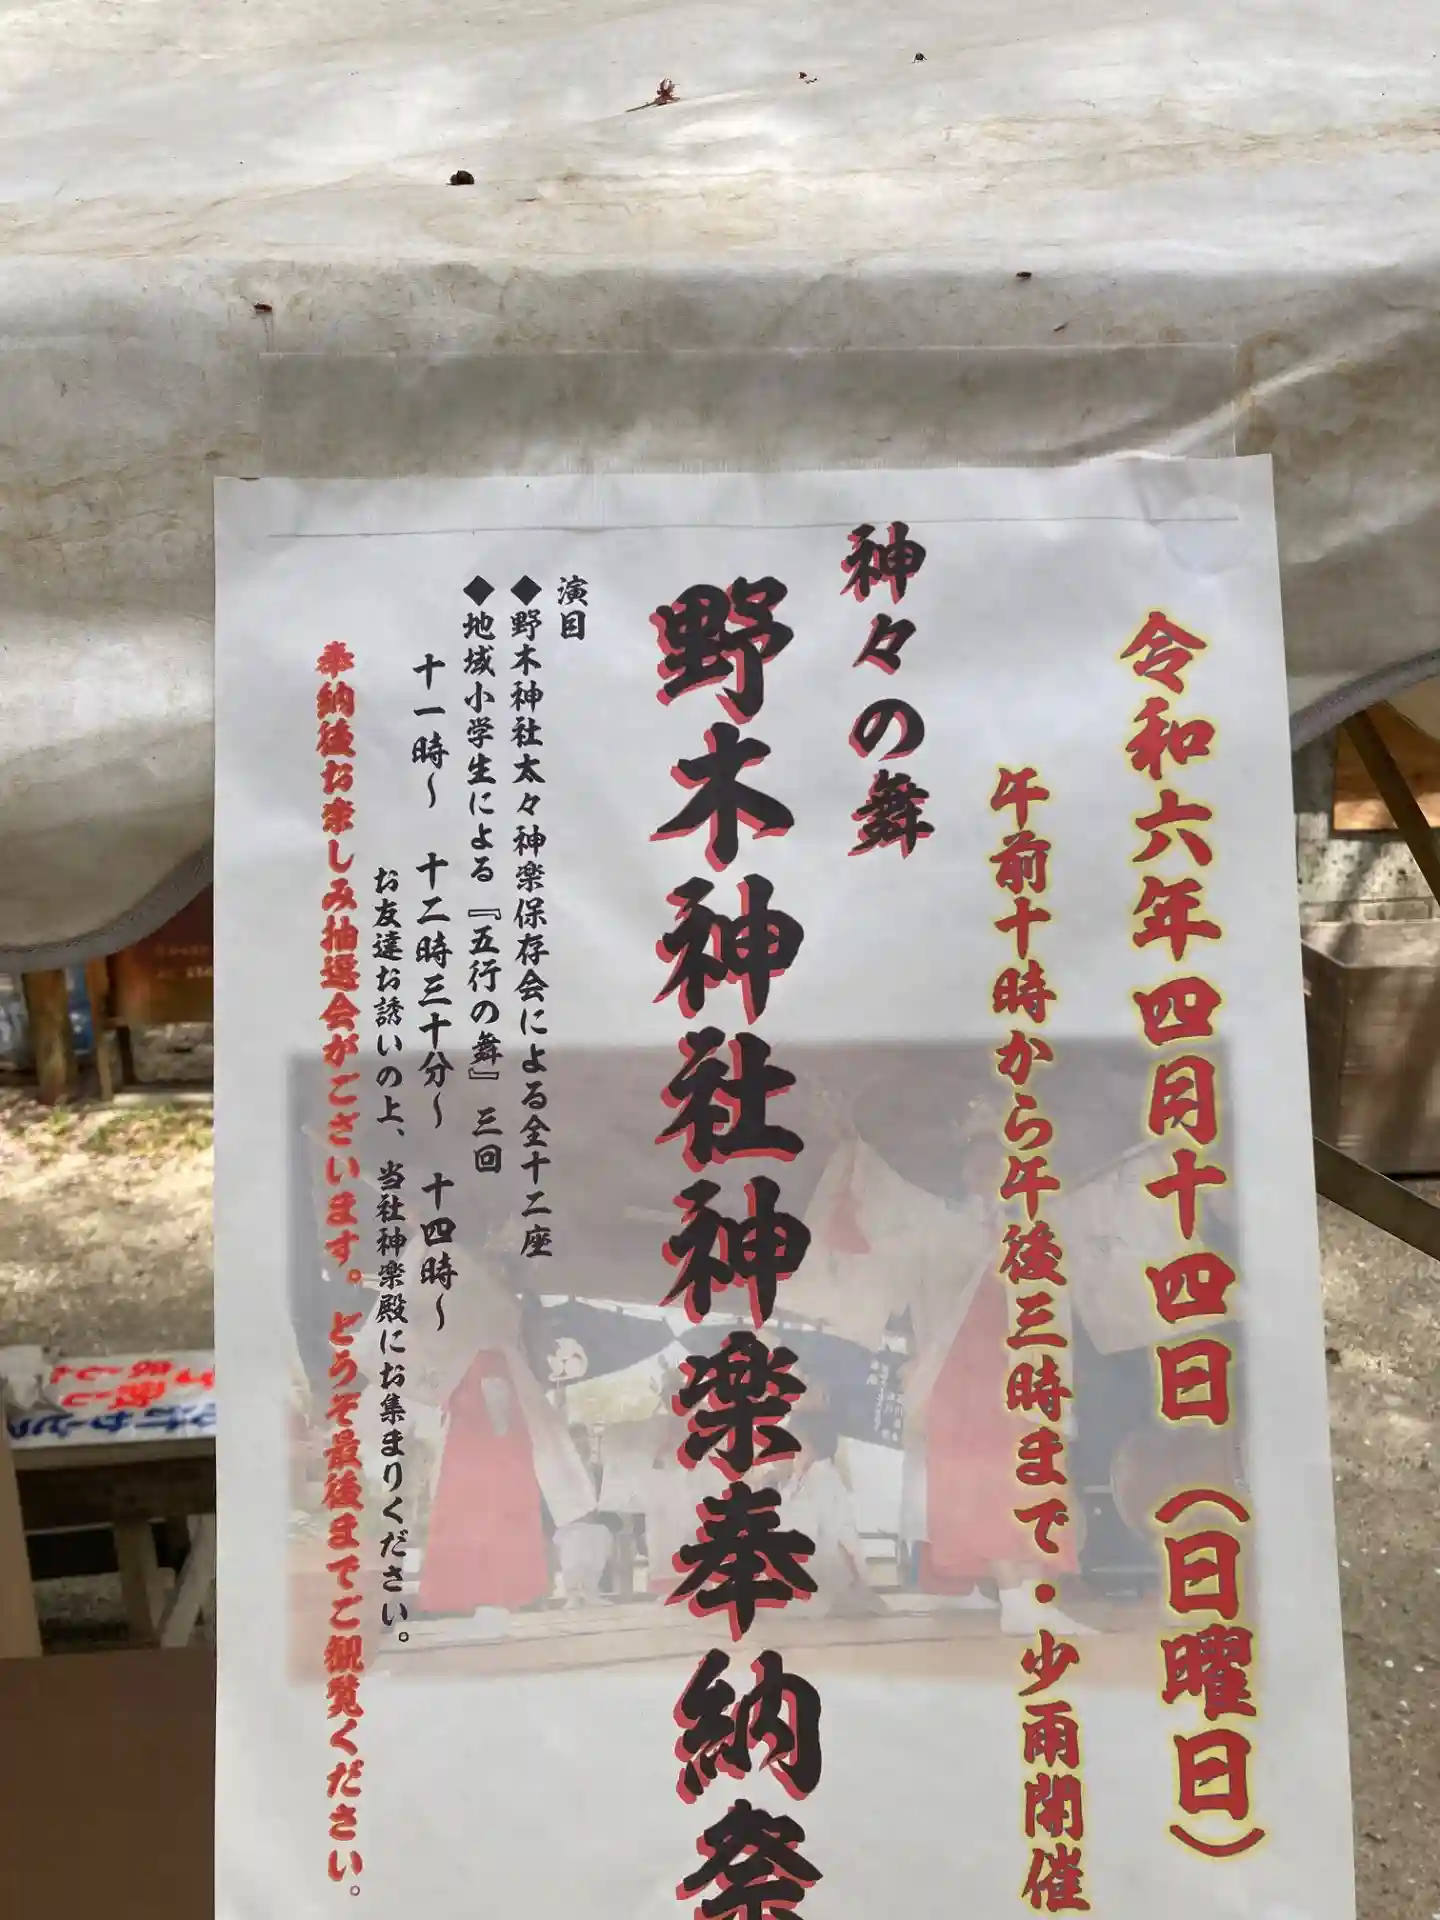 令和六年四月十四日(日曜日)
午前十時から午後三時まで・少雨開催
神々の舞
野木神社神楽奉納祭
演目
◆野木神社太々神楽保存会による全十二座
◆地域小学生による『五行の舞』 三回
十一時〜 十二時三十分〜 十四時〜
お友達お誘いの上、当社神楽殿にお集まりください。
奉納後お楽しみ抽選会がございます。どうぞ最後までご観覧ください。